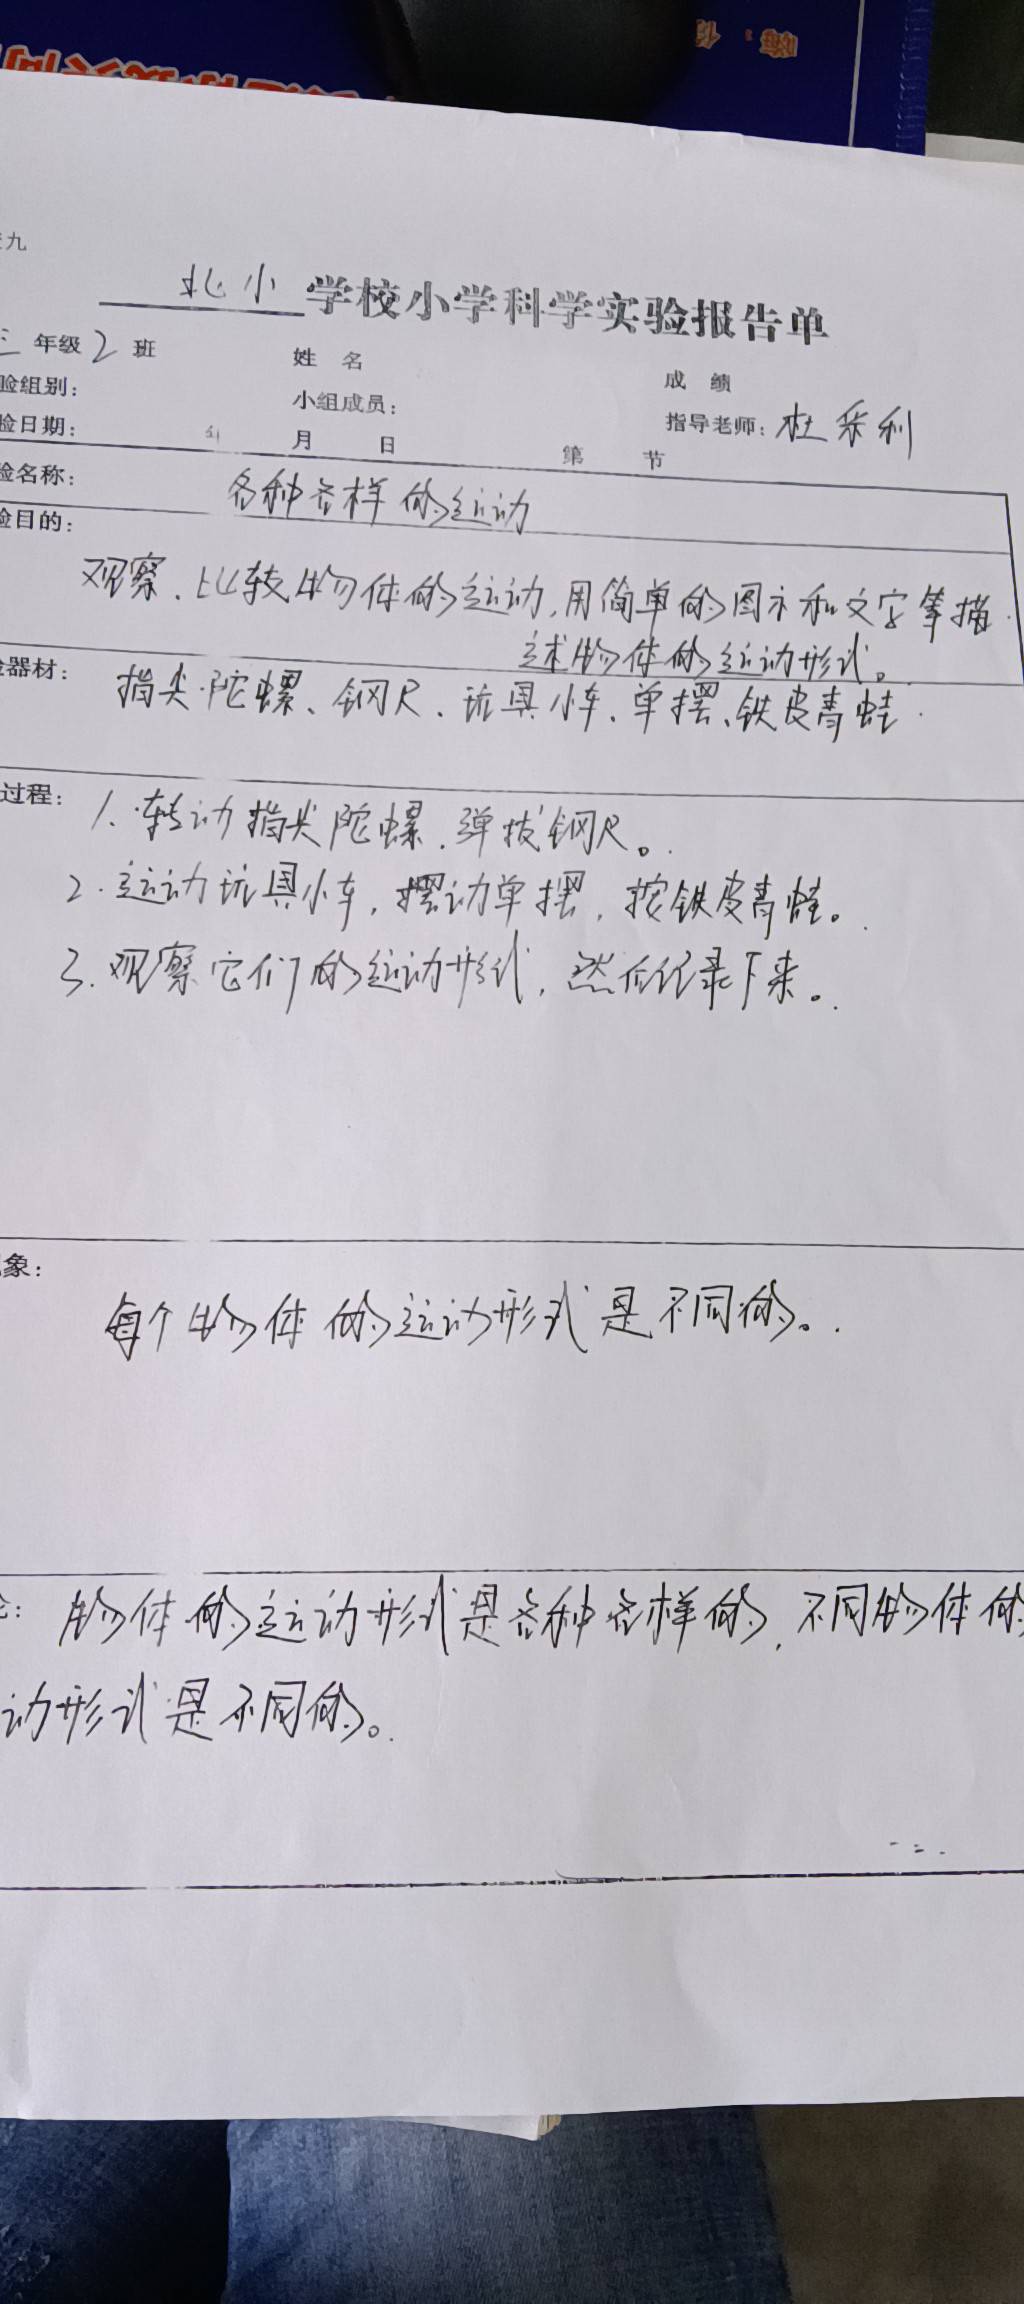 九
北小学校小学科学实验报告单
三年级2班 姓名 成绩
验组别: 小组成员: 指导老师:杜采利
验日期: 年 月 日 第 节
验名称: 各种各样的运动
验目的:
观察、比较物体的运动,用简单的图示和文字等描
述物体的运动形式。
器材: 指尖陀螺、钢尺、玩具小车、单摆、铁皮青蛙
过程: 1.转动指尖陀螺、弹拔钢尺。
2.运动玩具小车,摆动单摆,按铁皮青蛙。
3.观察它们的运动形式,然后记录下来。
象:
每个物体的运动形式是不同的。
物体的运动形式是各种各样的,不同物体的
动形式是不同的。